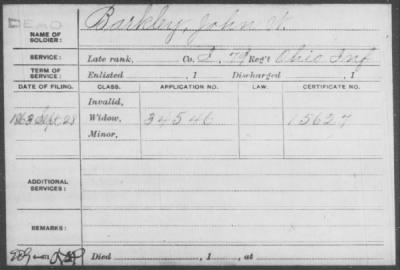 DEAD
NAME OF SOLDIER: Barkley, John W.
SERVICE: Late rank, Co. 79 Reg't Ohio Inf
TERM OF SERVICE: Enlisted , 1 Discharged , 1
DATE OF FILING. CLASS. APPLICATION NO. LAW. CERTIFICATE NO.
Invalid,
1863 Sept 28 Widow, 34546 15627
Minor,
ADDITIONAL SERVICES:
REMARKS:
Died , 1 , at